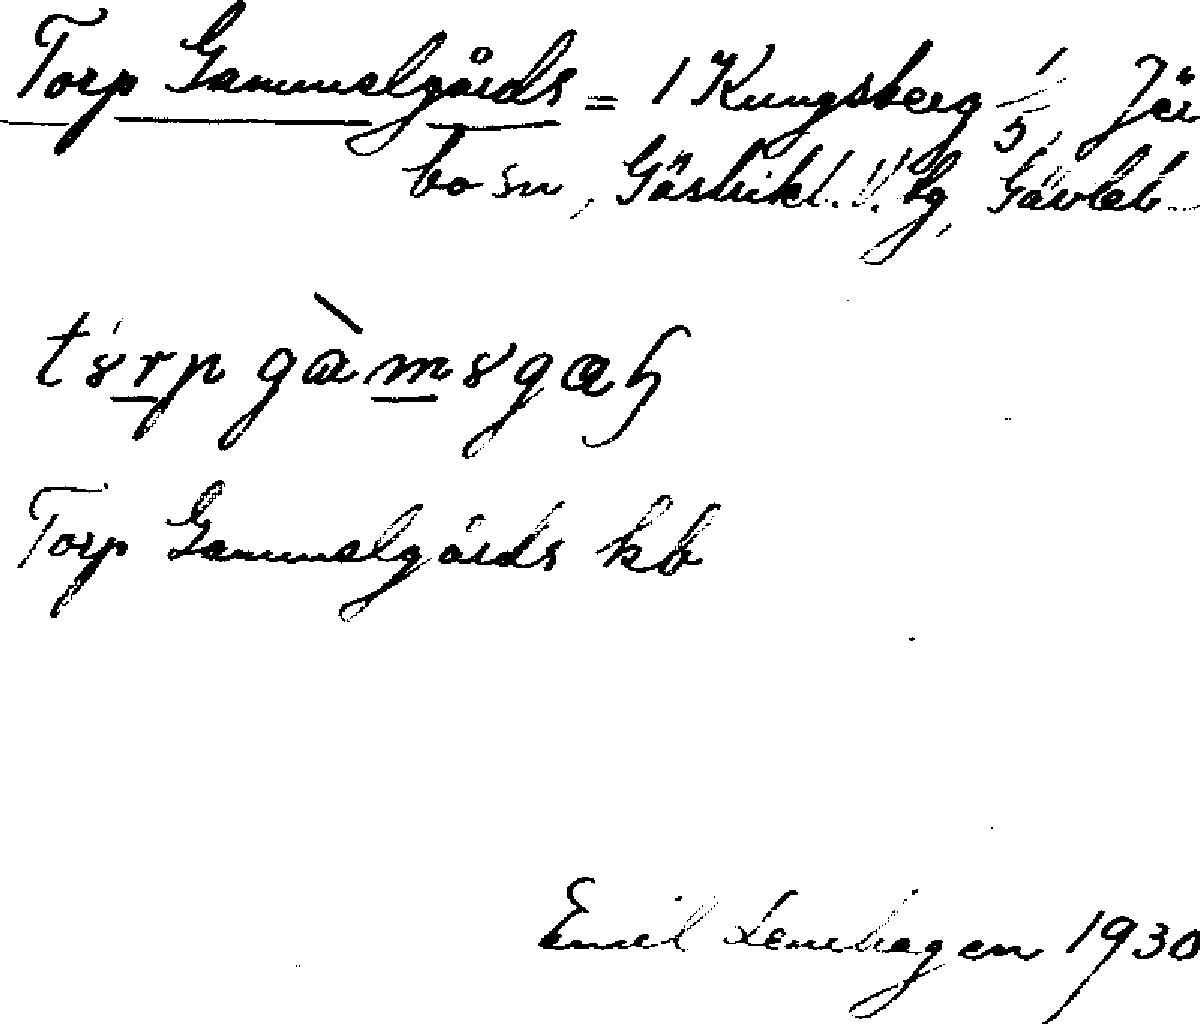 Torp Gammelgårds = 1 Kungsberg 1/5, Jär
bo sn, Gästrikl. V. tg, Gävleb
Torp Gammelgårds kb
Emil Lenehagen 1930